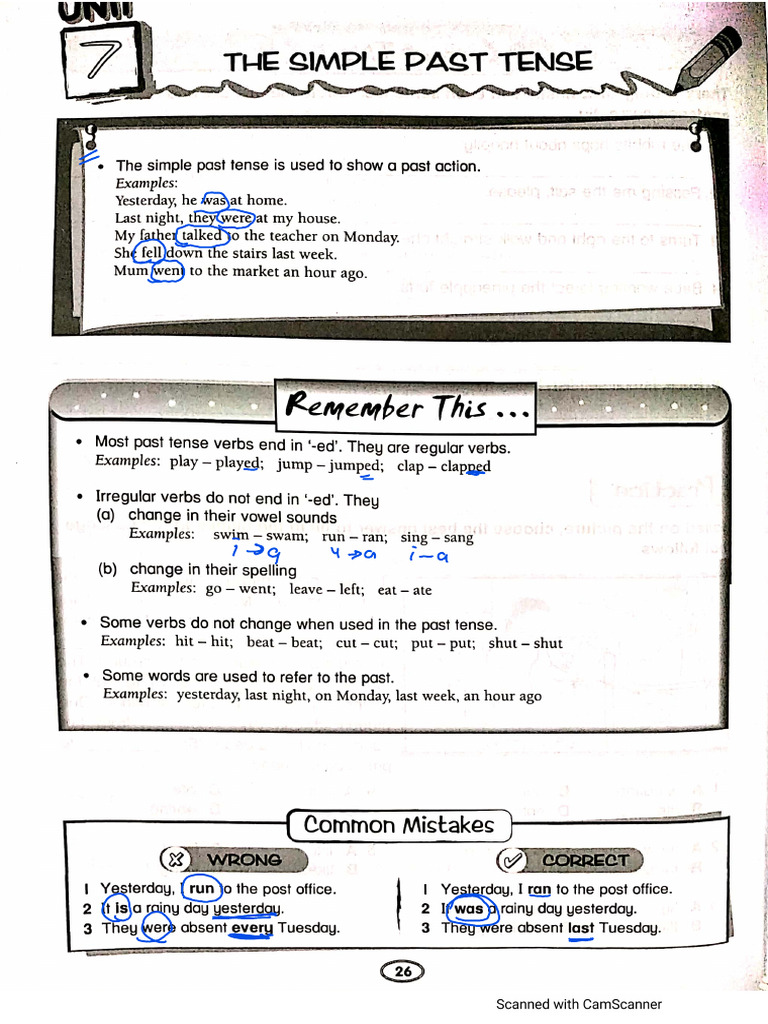 UNIT
7
THE SIMPLE PAST TENSE
• The simple past tense is used to show a past action.
Examples:
Yesterday, he was at home.
Last night, they were at my house.
My father talked to the teacher on Monday.
She fell down the stairs last week.
Mum went to the market an hour ago.
Remember This ...
• Most past tense verbs end in ‘-ed’. They are regular verbs.
Examples: play – played; jump – jumped; clap – clapped
• Irregular verbs do not end in ‘-ed’. They
(a) change in their vowel sounds
Examples: swim – swam; run – ran; sing – sang
i → a u → a i – a
(b) change in their spelling
Examples: go – went; leave – left; eat – ate
• Some verbs do not change when used in the past tense.
Examples: hit – hit; beat – beat; cut – cut; put – put; shut – shut
• Some words are used to refer to the past.
Examples: yesterday, last night, on Monday, last week, an hour ago
Common Mistakes
WRONG
1 Yesterday, I run to the post office.
2 It is a rainy day yesterday.
3 They were absent every Tuesday.
CORRECT
1 Yesterday, I ran to the post office.
2 It was a rainy day yesterday.
3 They were absent last Tuesday.
26
Scanned with CamScanner